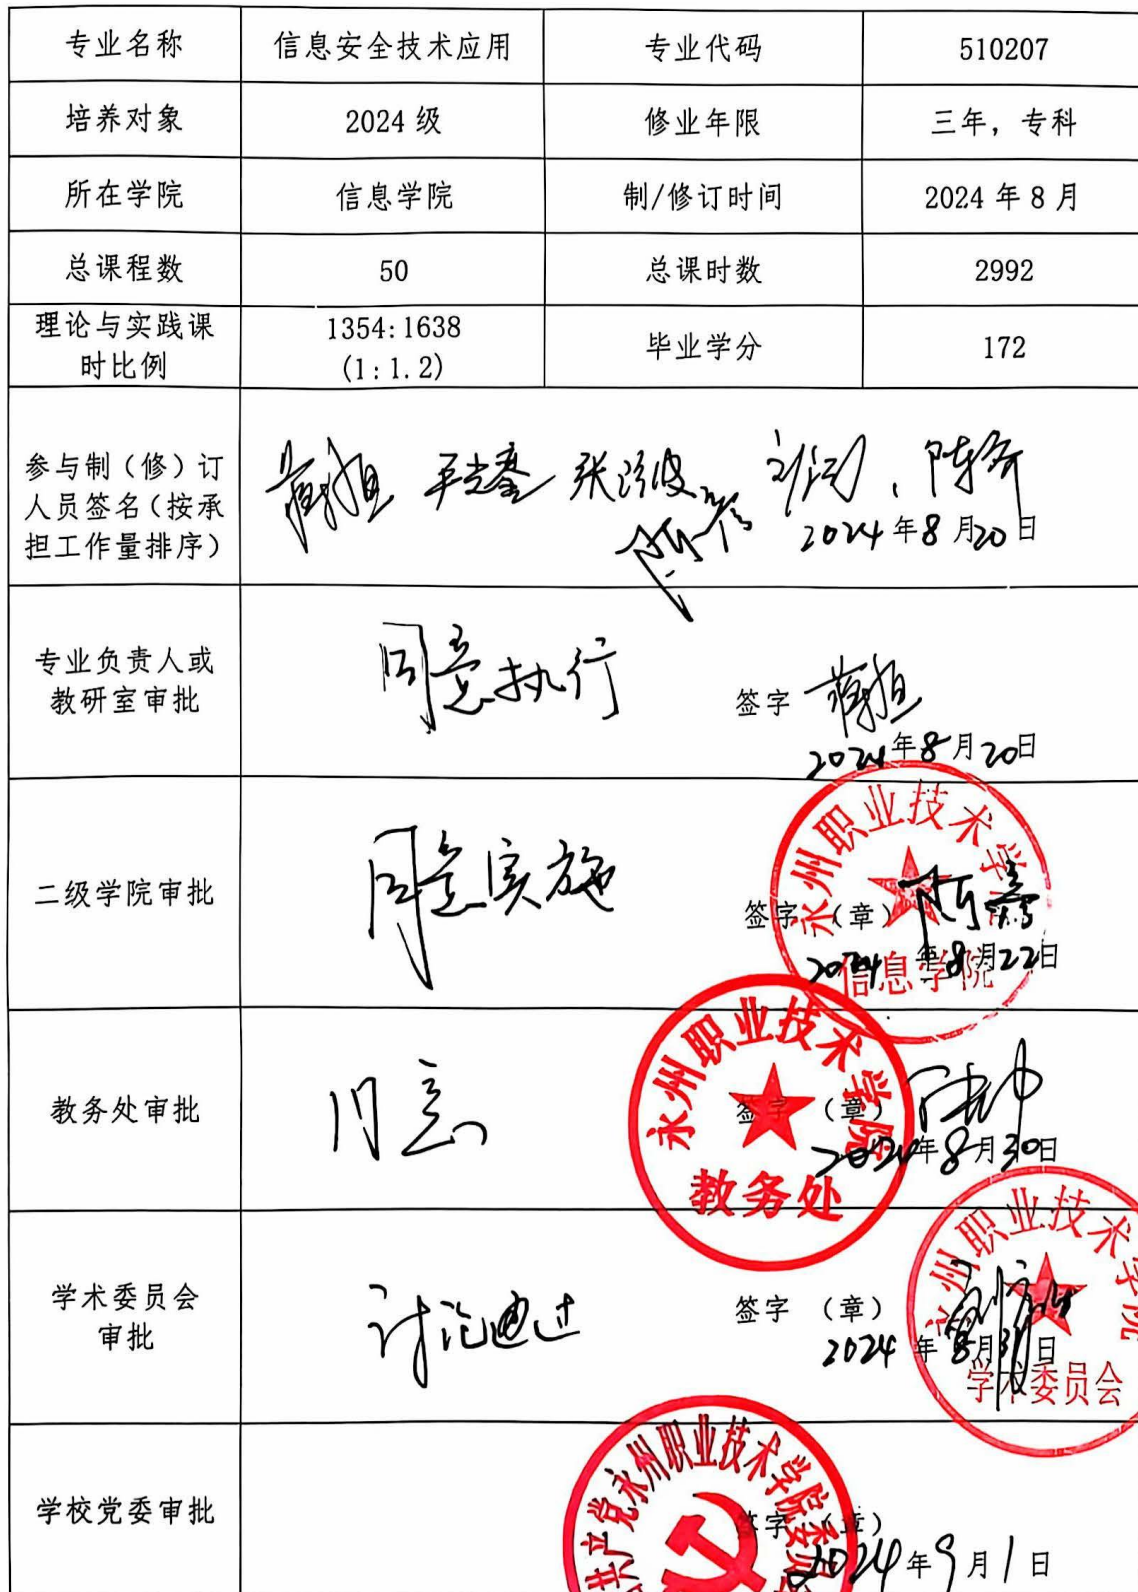 专业名称 信息安全技术应用 专业代码 510207
培养对象 2024 级 修业年限 三年，专科
所在学院 信息学院 制/修订时间 2024 年 8 月
总课程数 50 总课时数 2992
理论与实践课
时比例
1354:1638
(1:1.2)
毕业学分 172
参与制（修）订
人员签名（按承
担工作量排序）
2024 年 8 月 20 日
专业负责人或
教研室审批
同意执行
签字
2024 年 8 月 20 日
二级学院审批
同意实施
签字（章）陈鑫
2024 年 8 月 22 日
永州职业技术学院
信息学院
教务处审批
同意
签字（章）
2024 年 8 月 30 日
永州职业技术学院
教务处
学术委员会
审批
讨论通过
签字（章）
2024 年 8 月 31 日
永州职业技术学院
学术委员会
学校党委审批
签字（章）
2024 年 9 月 1 日
共产党永州职业技术学院委员